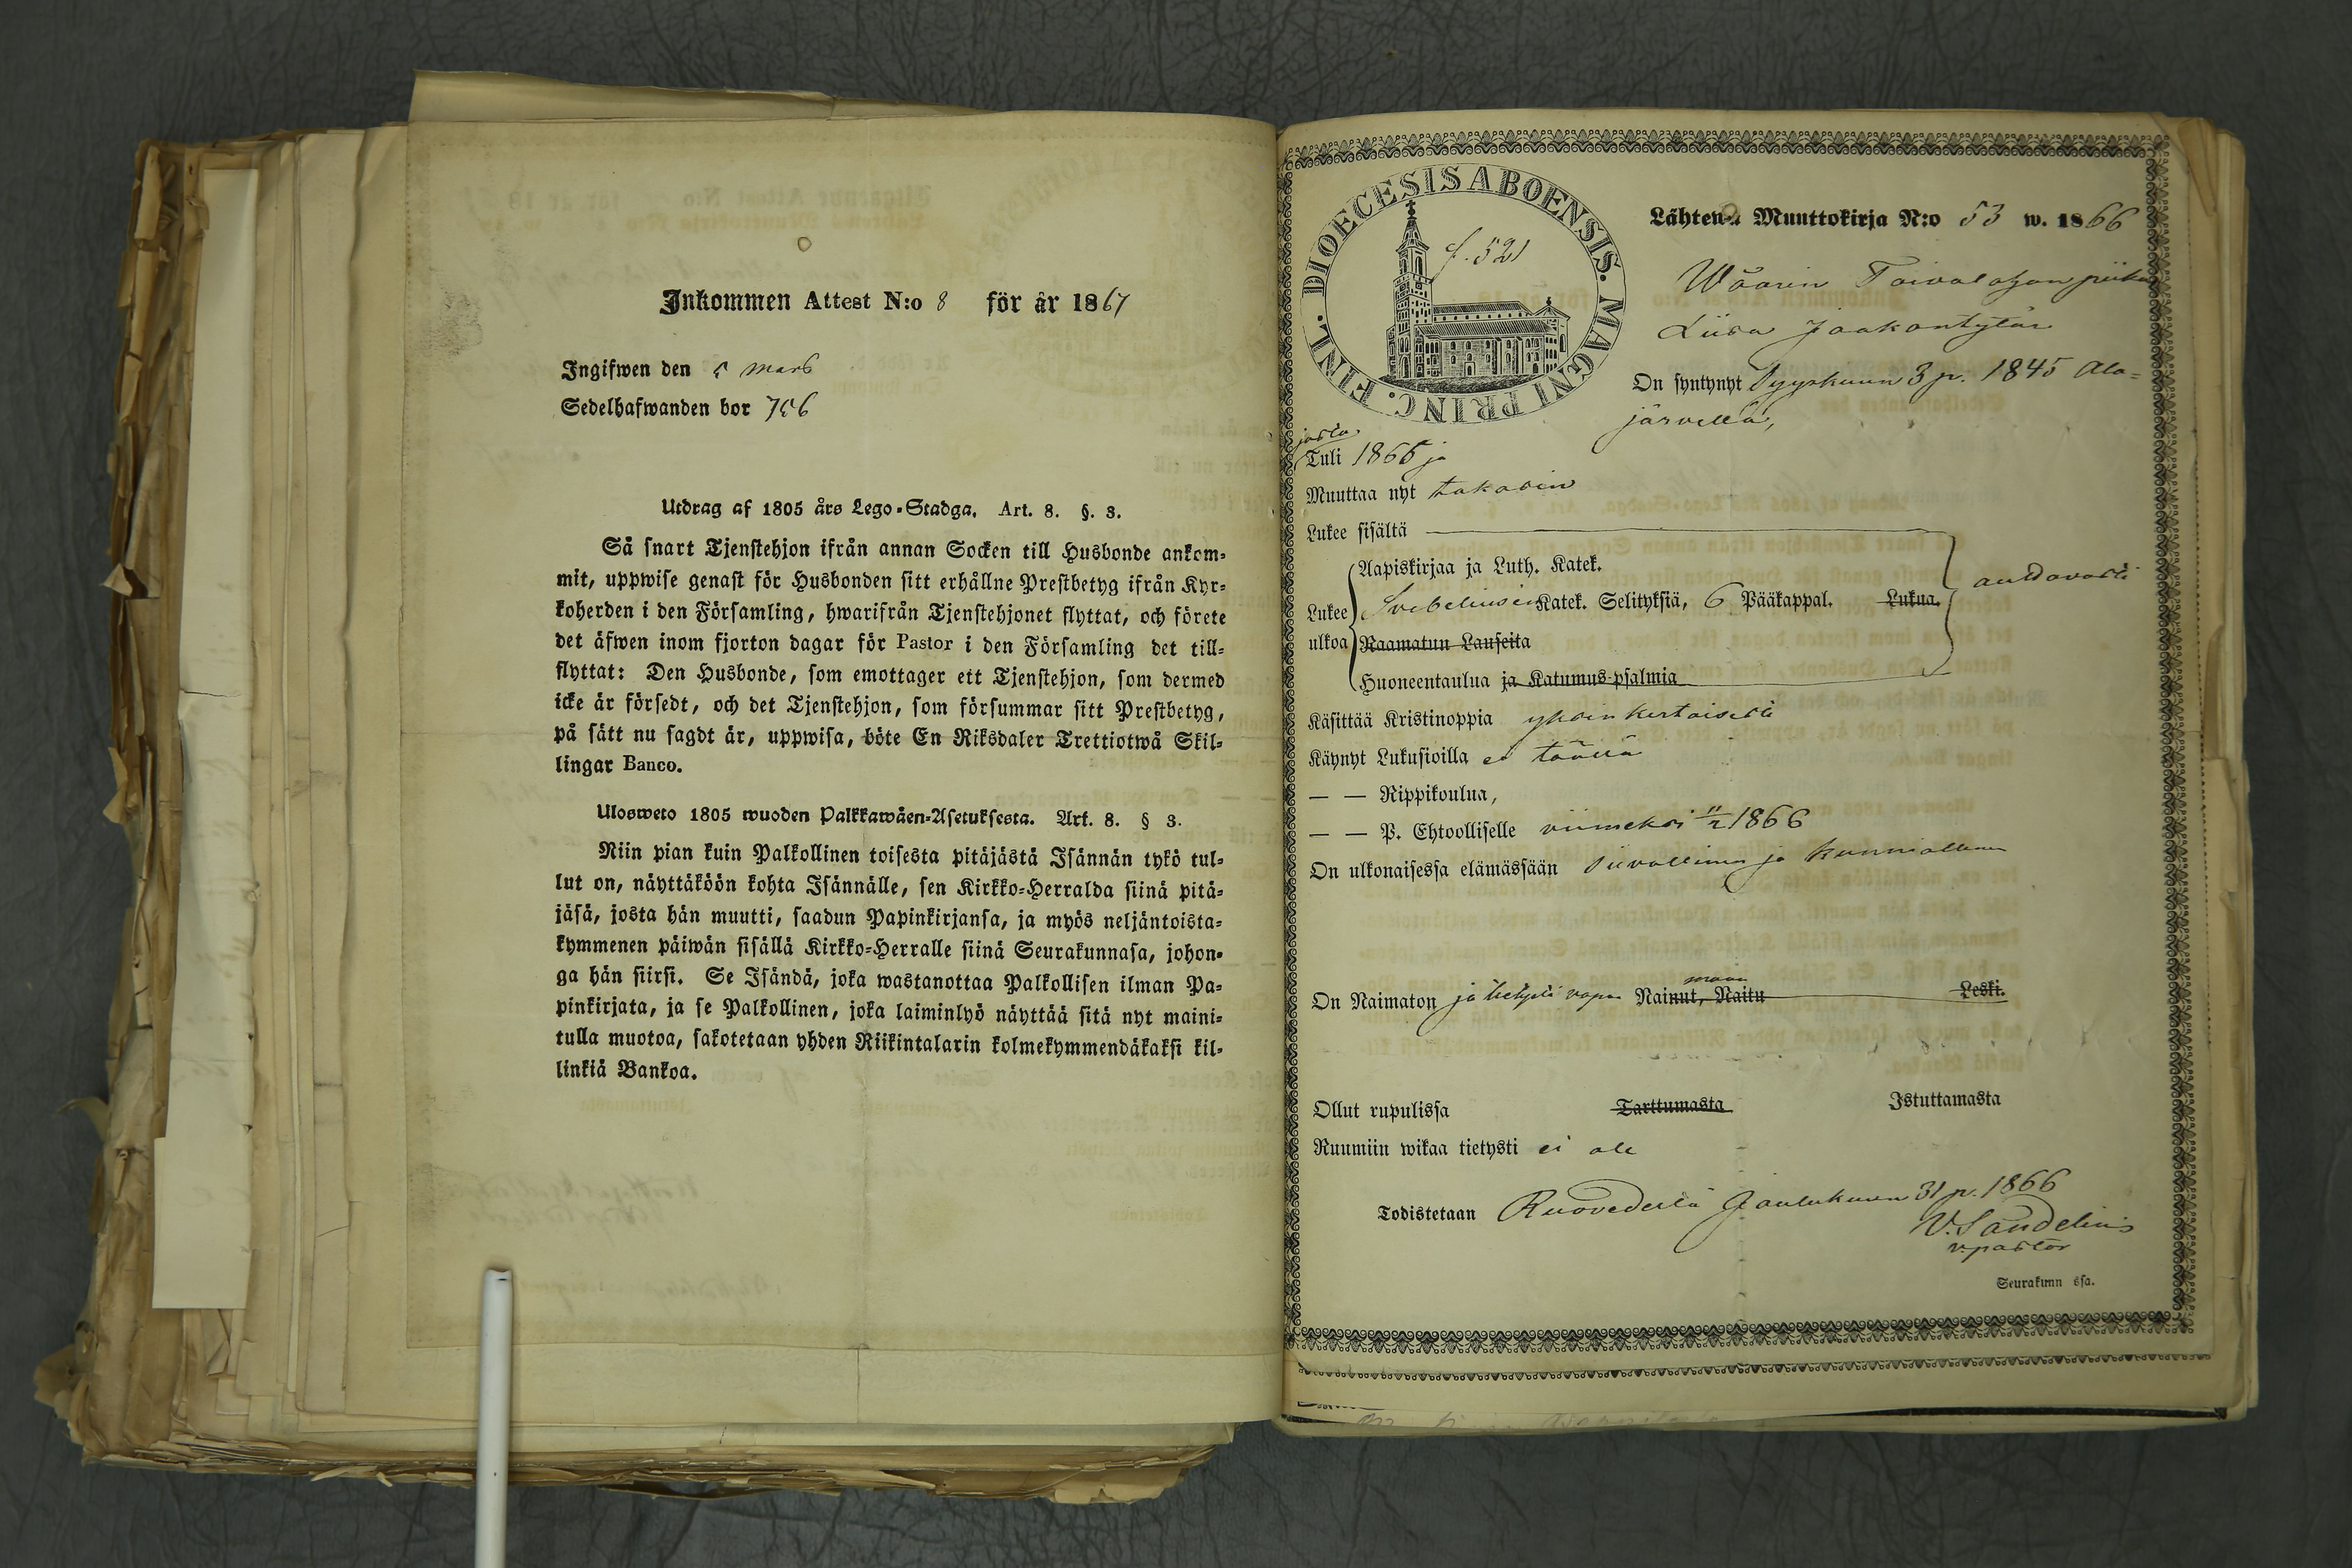 Inkommen Attest N:o 8 för år 1867
Ingifwen den 5 mars
Sedelhafwanden bor 706
Utdrag af 1805 års Lego-Stadga. Art. 8. §. 3.
Så snart Tjenstehjon ifrån annan Socken till Husbonde ankom-
mit, uppwise genast för Husbonden sitt erhållne Prestbetyg ifrån Kyr-
koherden i den Församling, hwarifrån Tjenstehjonet flyttat, och förete
det äfwen inom fjorton dagar för Pastor i den Församling det till-
flyttat: Den Husbonde, som emottager ett Tjenstehjon, som dermed
icke är försedt, och det Tjenstehjon, som försummar sitt Prestbetyg,
på sätt nu sagdt är, uppwisa, böte En Riksdaler Trettiotwå Skil-
lingar Banco.
Ulosweto 1805 wuoden Palkkawäen-Asetuksesta. Art. 8. § 3.
Niin pian kuin Palkollinen toisesta pitäjästä Isännän tykö tul-
lut on, näyttäköön kohta Isännälle, sen Kirkko-Herralda siinä pitä-
jäsä, josta hän muutti, saadun Papinkirjansa, ja myös neljäntoista-
kymmenen päiwän sisällä Kirkko-Herralle siinä Seurakunnasa, johon-
ga hän siirsi. Se Isändä, joka wastanottaa Palkollisen ilman Pa-
pinkirjata, ja se Palkollinen, joka laiminlyö näyttää sitä nyt maini-
tulla muotoa, sakotetaan yhden Riikintalarin kolmekymmendäkaksi kil-
linkiä Bankoa.
DIOECESIS ABOENSIS. MAGNI PRINC. FINL.
f. 521
Lähten- Muuttokirja N:o 53 w. 1866
Wäärin Toivalojan piika
Liisa Jaakontytär
On syntynyt Syyskuun 3 p. 1845 Ala-
järvellä,
josta
Tuli 1865 ja
Muuttaa nyt takasin
Lukee sisältä
Aapiskirjaa ja Luth. Katek.
Lukee Svebeliusen Katek. Selityksiä, 6 Pääkappal. Lukua. auttavasti
ulkoa Raamatun Lauseita
Huoneentaulua ja Katumus-psalmia
Käsittää Kristinoppia yksinkertaisesti
Käynyt Lukusioilla ei täällä
— — Rippikoulua,
— — P. Ehtoolliselle viimeksi 11/2 1866
On ulkonaisessa elämässään siivollinen ja kunniallinen
On Naimaton ja tietysti vapaa Nainut, Naitu Leski.
Ollut rupulissa Tarttumasta Istuttamasta
Ruumiin wikaa tietysti ei ole
Todistetaan Ruovedellä Joulukuun 31 p. 1866
V. Sandelius
v. pastor
Seurakunn ssa.